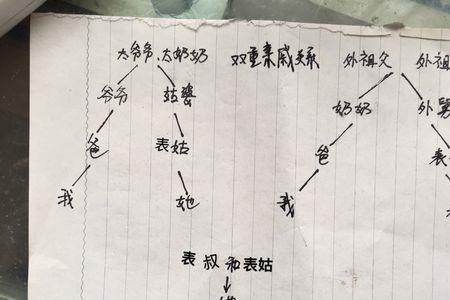 太爷爷、太奶奶 双重亲戚关系 外祖父 外祖
爷爷 姑婆 奶奶 外舅
爸 表姑 爸 表
我 她 我
表叔和表姑